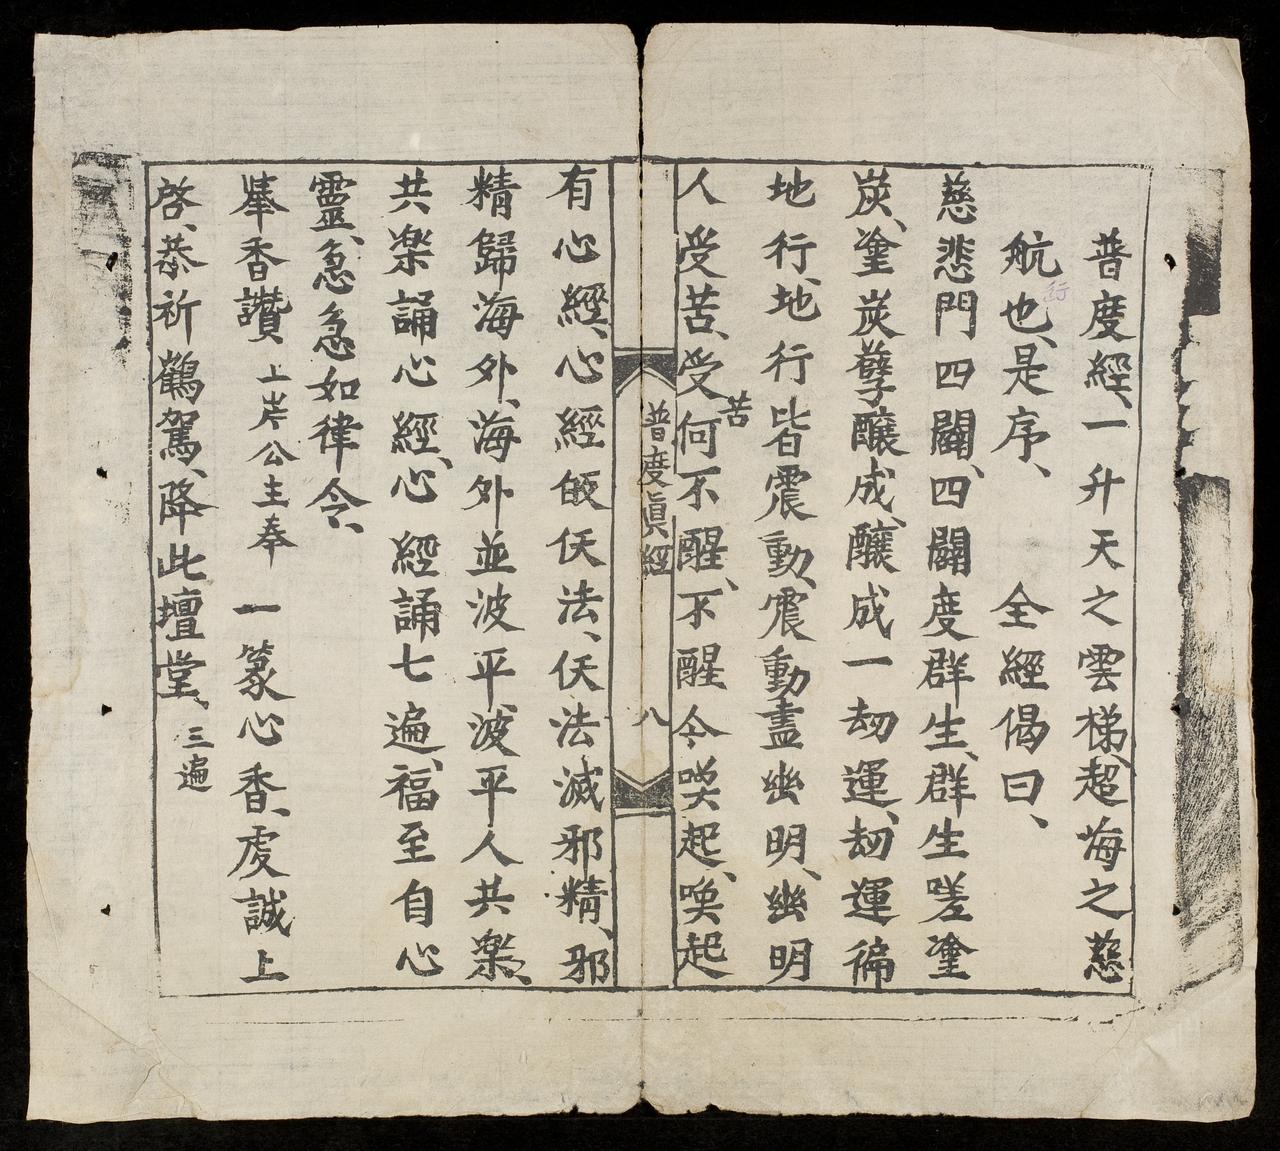 普度經、一升天之雲梯、超海之慈
航也、是序、 全經偈曰、
行
慈悲門四闢、四闢度群生、群生嗟塗
炭、塗炭孽釀成、釀成一刼運、刼運徧
地行、地行皆震動、震動盡幽明、幽明
人受苦、受苦何不醒、不醒令喚起、喚起
普度眞經 八
有心經、心經皈仸法、仸法滅邪精、邪
精歸海外、海外並波平、波平人共楽、
共楽誦心經、心經誦七遍、福至自心
靈、急急如律令、
奉香讚 上岸公主奉 一篆心香、虔誠上
啓、恭祈鶴駕、降此壇堂、三遍